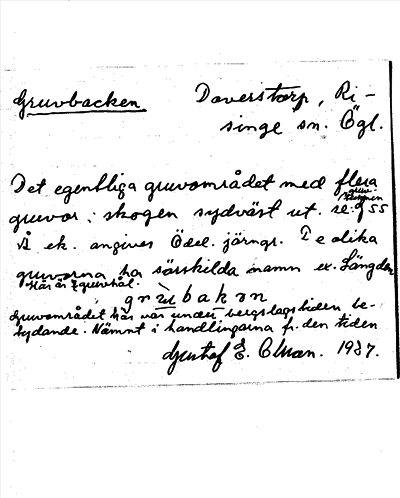 Gruvbacken Daverstorp, Ri-
singe sn. Ögl.
Det egentliga gruvområdet med flera
gruv-
namnen
gruvor i skogen sydväst ut. se: 955
Å ek. angives Ödel. järngr. De olika
gruvorna ha särskilda namn ex. Längden
Här är 7 gruvhål.
grùbakan
Gruvområdet här var under bergslagstiden be-
tydande. Nämnt i handlingarna fr. den tiden
Gustaf E. 1937.